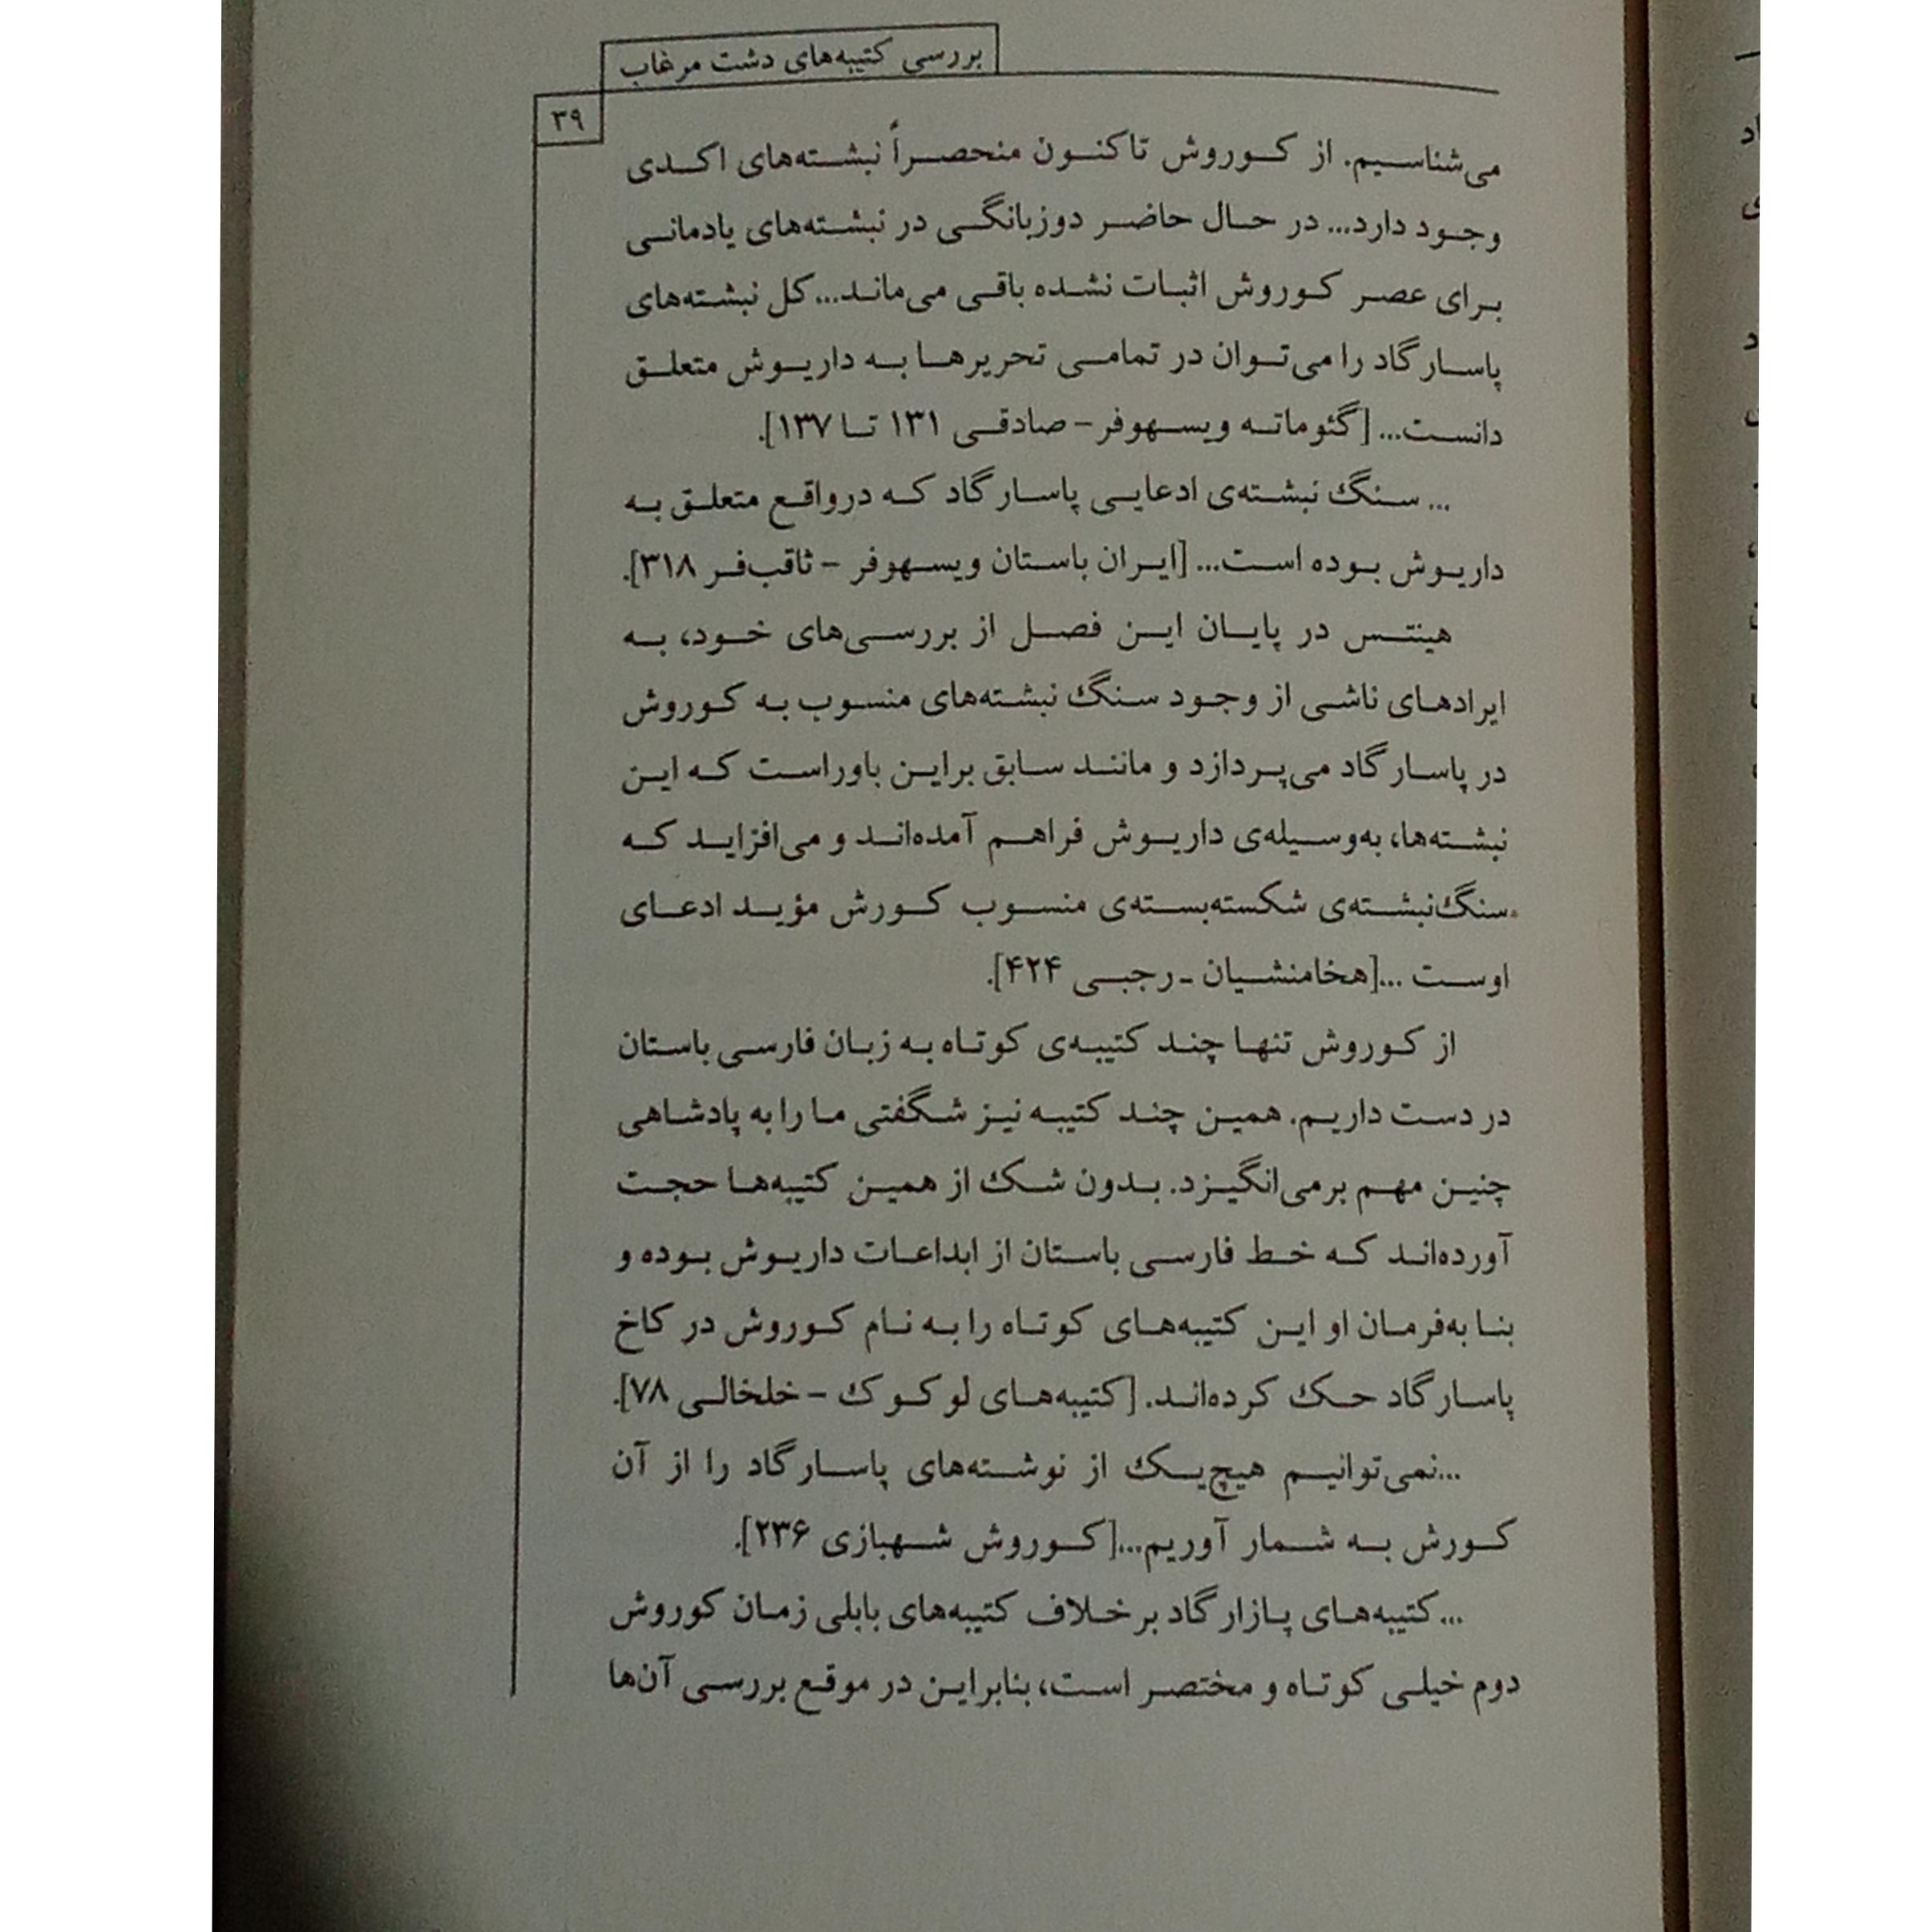 بررسی کتیبه‌های دشت مرغاب
۳۹
می‌شناسیم. از کوروش تاکنون منحصراً نبشته‌های اکدی
وجود دارد... در حال حاضر دوزبانگی در نبشته‌های یادمانی
برای عصر کوروش اثبات نشده باقی می‌ماند...کل نبشته‌های
پاسارگاد را می‌توان در تمامی تحریرها به داریوش متعلق
دانست... [گئوماته ویسهوفر- صادقی ۱۳۱ تا ۱۳۷].
... سنگ نبشته‌ی ادعایی پاسارگاد که درواقع متعلق به
داریوش بوده است... [ایران باستان ویسهوفر – ثاقب‌فر ۳۱۸].
هینتس در پایان این فصل از بررسی‌های خود، به
ایرادهای ناشی از وجود سنگ نبشته‌های منسوب به کوروش
در پاسارگاد می‌پردازد و مانند سابق براین باوراست که این
نبشته‌ها، به‌وسیله‌ی داریوش فراهم آمده‌اند و می‌افزاید که
سنگ‌نبشته‌ی شکسته‌بسته‌ی منسوب کورش مؤید ادعای
اوست ...[هخامنشیان - رجبی ۴۲۴].
از کوروش تنها چند کتیبه‌ی کوتاه به زبان فارسی باستان
در دست داریم. همین چند کتیبه نیز شگفتی ما را به پادشاهی
چنین مهم برمی‌انگیزد. بدون شک از همین کتیبه‌ها حجت
آورده‌اند که خط فارسی باستان از ابداعات داریوش بوده و
بنا به‌فرمان او این کتیبه‌های کوتاه را به نام کوروش در کاخ
پاسارگاد حک کرده‌اند. [کتیبه‌های لوکوک – خلخالی ۷۸].
...نمی‌توانیم هیچ‌یک از نوشته‌های پاسارگاد را از آن
کورش به شمار آوریم...[کوروش شهبازی ۲۳۶].
...کتیبه‌های پازارگاد برخلاف کتیبه‌های بابلی زمان کوروش
دوم خیلی کوتاه و مختصر است، بنابراین در موقع بررسی آن‌ها